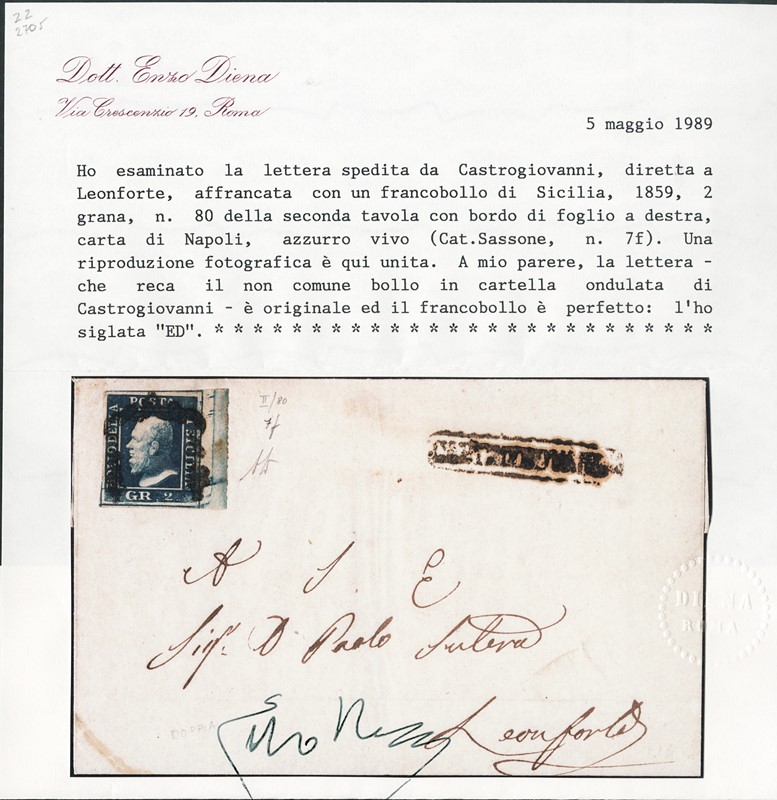 22
2705
Dott. Enzo Diena
Via Crescenzio 19, Roma
5 maggio 1989
Ho esaminato la lettera spedita da Castrogiovanni, diretta a
Leonforte, affrancata con un francobollo di Sicilia, 1859, 2
grana, n. 80 della seconda tavola con bordo di foglio a destra,
carta di Napoli, azzurro vivo (Cat.Sassone, n. 7f). Una
riproduzione fotografica è qui unita. A mio parere, la lettera -
che reca il non comune bollo in cartella ondulata di
Castrogiovanni - è originale ed il francobollo è perfetto: l'ho
siglata "ED". * * * * * * * * * * * * * * * * * * * * * * * * * *
BOLLO DELLA POSTA DI SICILIA
GR. 2
II/80
7f
A S E
Sigr. D Paolo Sutera
Leonforte
DIENA
ROMA
DOPPIA